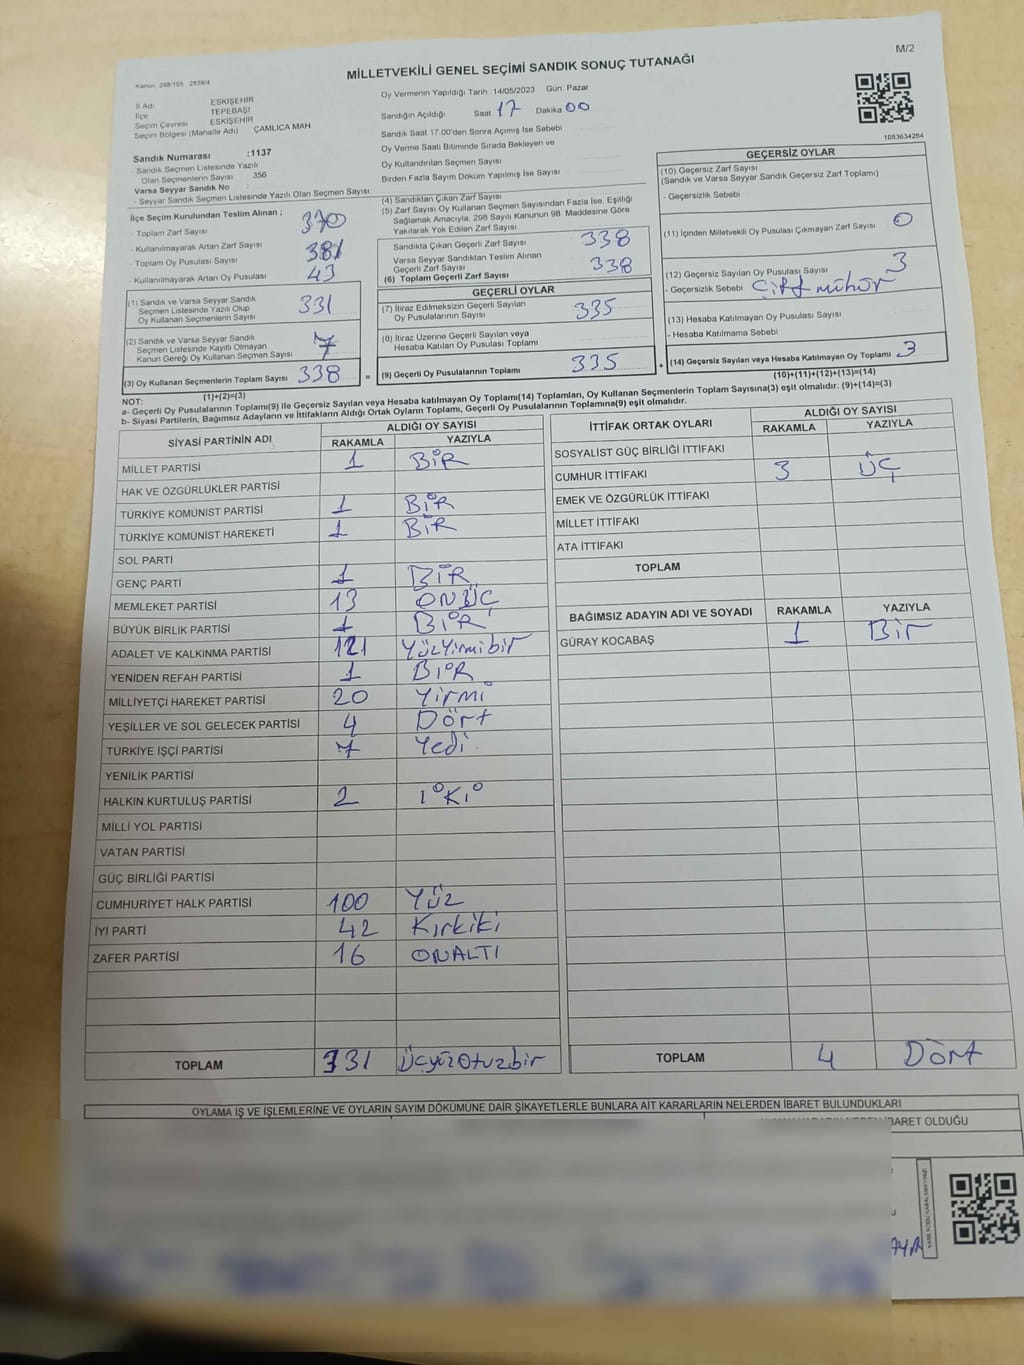 M/2
Kanun: 298/105 - 2839/4
MİLLETVEKİLİ GENEL SEÇİMİ SANDIK SONUÇ TUTANAĞI
İl Adı ESKİŞEHİR
İlçe TEPEBAŞI
Seçim Çevresi ESKİŞEHİR
Seçim Bölgesi (Mahalle Adı) ÇAMLICA MAH
Sandık Numarası :1137
- Sandık Seçmen Listesinde Yazılı
Olan Seçmenlerin Sayısı 356
Varsa Seyyar Sandık No :
- Seyyar Seçmen Listesinde Yazılı Olan Seçmen Sayısı:
Oy Vermenin Yapıldığı Tarih 14/05/2023 Gün Pazar
Sandığın Açıldığı Saat 17 Dakika 00
Sandık Saat 17.00'den Sonra Açımış İse Sebebi
Oy Verme Saati Bitiminde Sırada Bekleyen ve
Oy Kullandırılan Seçmen Sayısı
Birden Fazla Sayım Döküm Yapılmış İse Sayısı
1083634264
İlçe Seçim Kurulundan Teslim Alınan ;
- Toplam Zarf Sayısı 370
- Kullanılmayarak Artan Zarf Sayısı
- Toplam Oy Pusulası Sayısı 381
- Kullanılmayarak Artan Oy Pusulası 43
(1) Sandık ve Varsa Seyyar Sandık
Seçmen Listesinde Yazılı Olup
Oy Kullanan Seçmenlerin Sayısı 331
(2) Sandık ve Varsa Seyyar Sandık
Seçmen Listesinde Kayıtlı Olmayan
Kanun Gereği Oy Kullanan Seçmen Sayısı 7
(3) Oy Kullanan Seçmenlerin Toplam Sayısı 338 =
(1)+(2)=(3)
(4) Sandıktan Çıkan Zarf Sayısı
(5) Zarf Sayısı Oy Kullanan Seçmen Sayısından Fazla İse, Eşitliği
Sağlamak Amacıyla, 298 Sayılı Kanunun 98. Maddesine Göre
Yakılarak Yok Edilen Zarf Sayısı
Sandıkta Çıkan Geçerli Zarf Sayısı 338
Varsa Seyyar Sandıktan Teslim Alınan
Geçerli Zarf Sayısı
(6) Toplam Geçerli Zarf Sayısı 338
GEÇERLİ OYLAR
(7) İtiraz Edilmeksizin Geçerli Sayılan
Oy Pusulalarının Sayısı 335
(8) İtiraz Üzerine Geçerli Sayılan veya
Hesaba Katılan Oy Pusulası Toplamı
(9) Geçerli Oy Pusulalarının Toplamı 335 +
GEÇERSİZ OYLAR
(10) Geçersiz Zarf Sayısı
(Sandık ve Varsa Seyyar Sandık Geçersiz Zarf Toplamı)
- Geçersizlik Sebebi
(11) İçinden Milletvekili Oy Pusulası Çıkmayan Zarf Sayısı 0
(12) Geçersiz Sayılan Oy Pusulası Sayısı 3
- Geçersizlik Sebebi Çift mühür
(13) Hesaba Katılmayan Oy Pusulası Sayısı
- Hesaba Katılmama Sebebi
(14) Geçersiz Sayılan veya Hesaba Katılmayan Oy Toplamı 3
(10)+(11)+(12)+(13)=(14)
NOT:
a- Geçerli Oy Pusulalarının Toplamı(9) ile Geçersiz Sayılan veya Hesaba katılmayan Oy Toplamı(14) Toplamları, Oy Kullanan Seçmenlerin Toplam Sayısına(3) eşit olmalıdır. (9)+(14)=(3)
b- Siyasi Partilerin, Bağımsız Adayların ve İttifakların Aldığı Ortak Oyların Toplamı, Geçerli Oy Pusulalarının Toplamına(9) eşit olmalıdır.
SİYASİ PARTİNİN ADI ALDIĞI OY SAYISI
RAKAMLA YAZIYLA
MİLLET PARTİSİ 1 BİR
HAK VE ÖZGÜRLÜKLER PARTİSİ
TÜRKİYE KOMÜNİST PARTİSİ 1 BİR
TÜRKİYE KOMÜNİST HAREKETİ 1 BİR
SOL PARTİ
GENÇ PARTİ 1 BİR
MEMLEKET PARTİSİ 13 ONÜÇ
BÜYÜK BİRLİK PARTİSİ 1 BİR
ADALET VE KALKINMA PARTİSİ 121 Yüzyirmibir
YENİDEN REFAH PARTİSİ 1 BİR
MİLLİYETÇİ HAREKET PARTİSİ 20 Yirmi
YEŞİLLER VE SOL GELECEK PARTİSİ 4 Dört
TÜRKİYE İŞÇİ PARTİSİ 7 Yedi.
YENİLİK PARTİSİ
HALKIN KURTULUŞ PARTİSİ 2 İKİ
MİLLİ YOL PARTİSİ
VATAN PARTİSİ
GÜÇ BİRLİĞİ PARTİSİ
CUMHURİYET HALK PARTİSİ 100 Yüz
İYİ PARTİ 42 Kırkiki
ZAFER PARTİSİ 16 ONALTI
TOPLAM 331 Üçyüzotuzbir
İTTİFAK ORTAK OYLARI ALDIĞI OY SAYISI
RAKAMLA YAZIYLA
SOSYALİST GÜÇ BİRLİĞİ İTTİFAKI
CUMHUR İTTİFAKI 3 ÜÇ
EMEK VE ÖZGÜRLÜK İTTİFAKI
MİLLET İTTİFAKI
ATA İTTİFAKI
TOPLAM
BAĞIMSIZ ADAYIN ADI VE SOYADI RAKAMLA YAZIYLA
GÜRAY KOCABAŞ 1 Bir
TOPLAM 4 Dört
OYLAMA İŞ VE İŞLEMLERİNE VE OYLARIN SAYIM DÖKÜMÜNE DAİR ŞİKAYETLERLE BUNLARA AİT KARARLARIN NELERDEN İBARET BULUNDUKLARI
İBARET OLDUĞU